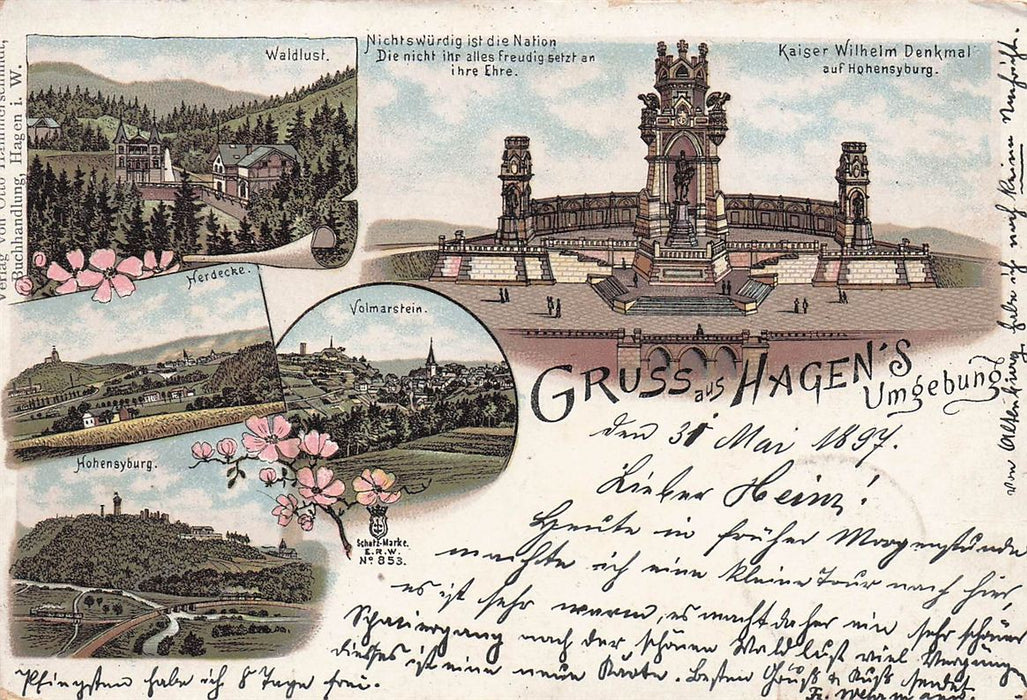 Verlag von Otto Hammerschmidt,
Buchhandlung, Hagen i. W.
Waldlust.
Nichtswürdig ist die Nation
Die nicht ihr alles freudig setzt an
ihre Ehre.
Kaiser Wilhelm Denkmal
auf Hohensyburg.
Herdecke.
Volmarstein.
Hohensyburg.
Schutz-Marke.
E.R.W.
No 853.
GRUSS aus HAGEN'S
Umgebung.
den 31 Mai 1897.
Lieber Heinz!
Heute in früher Morgenstunde
machte ich eine kleine Tour nach hier,
es ist sehr warm, es macht daher ein sehr schöner
Spaziergang nach der schönen Waldlust viel Vergnügen
dieses ist eine neue Karte. Besten Gruß & Kuß sendet
Fr. Wehrmann
Pfingsten habe ich 8 Tage frei.
von Altenburg habe ich noch keine Nachricht.